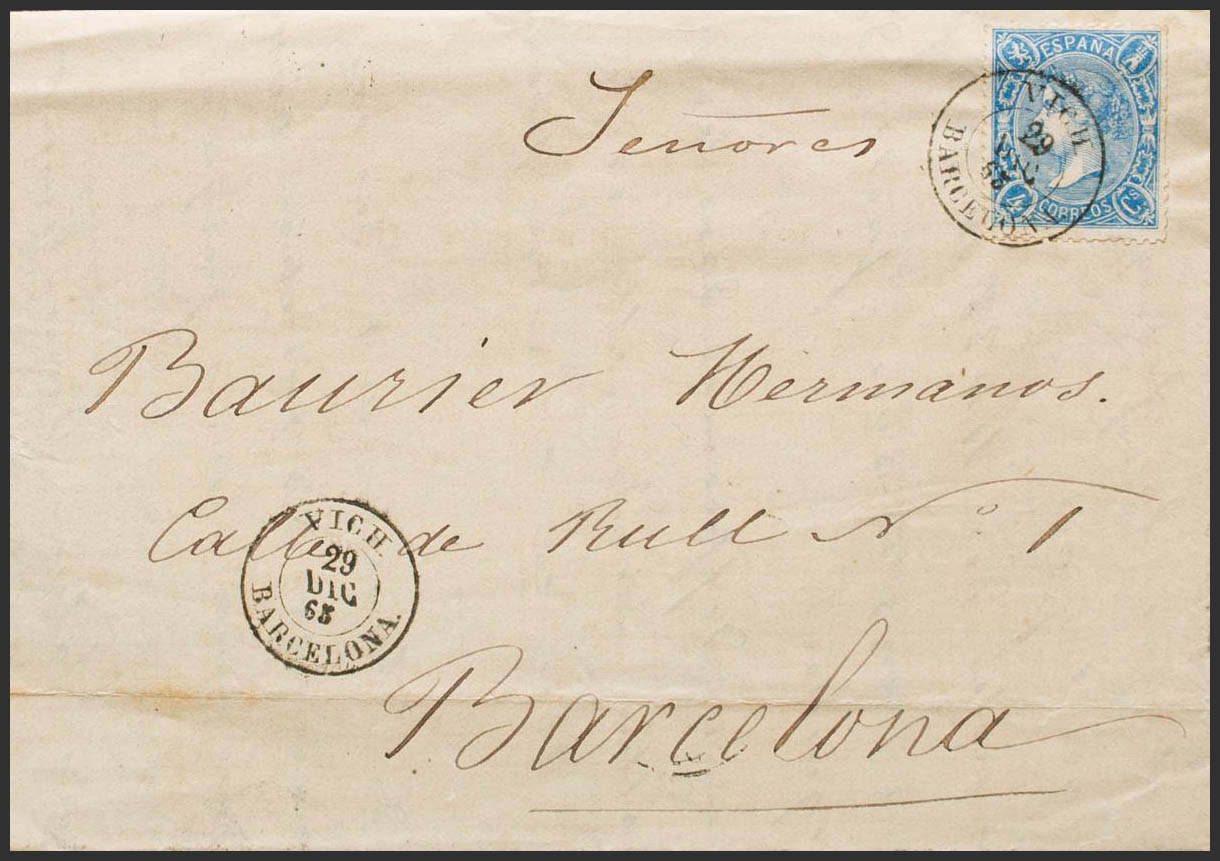 ESPAÑA
4 CORREOS Cs
VICH
29
DIC
65
BARCELONA
Señores
Baurier Hermanos.
Calle de Rull Nº 1
VICH.
29
DIC
65
BARCELONA.
Barcelona